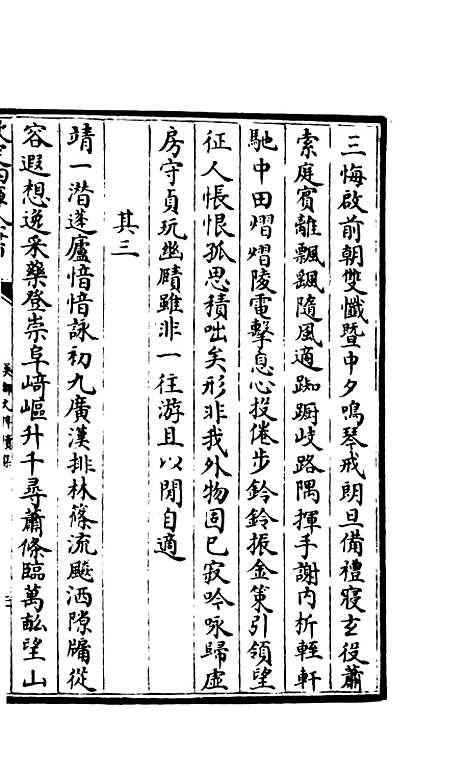 三悔啟前朝雙懺暨中夕鳴琴戒朗旦備禮寢玄役蕭
索庭賓離飄飄隨風適踟蹰岐路隅揮手謝内析輊軒
馳中田熠熠陵電擊息心投倦步鈴鈴振金策引領望
征人悵恨孤思積咄矣形非我外物固已寂吟咏歸虚
房守貞玩幽賾雖非一往游且以閒自適
其三
靖一潛蓬廬愔愔詠初九廣漢排林篠流飈洒隙牖從
容遐想逸采藥登崇阜﨑嶇升千尋蕭條臨萬畝望山